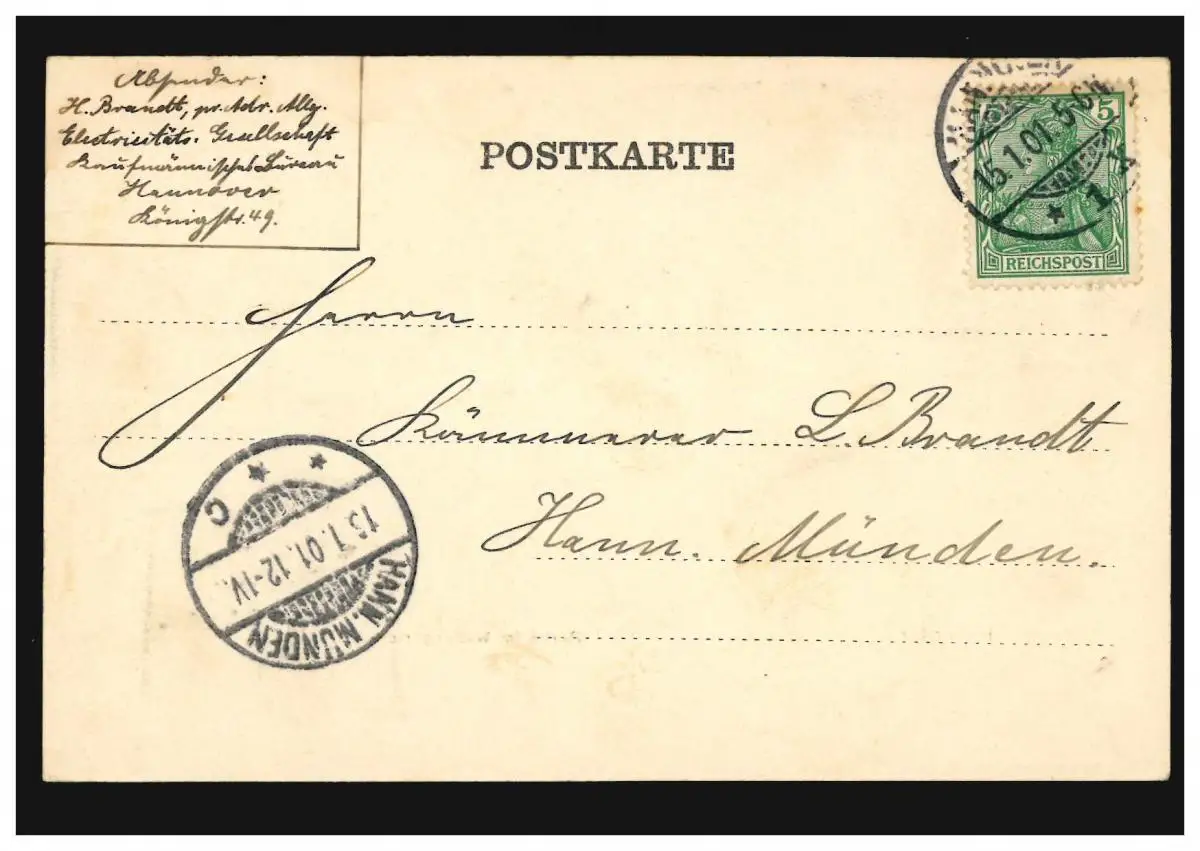 Absender:
H. Brandt, pr. Adr. Allg.
Electricitäts-Gesellschaft
Kaufmännisches Bureau
Hannover
Königstr. 49.
POSTKARTE
HANNOVER
15.1.01. 5-6N
* 1 *
5
REICHSPOST
Herrn
Kämmerer L. Brandt
Hann. Münden.
* * C
15.1.01.12-1V.
HANN. MÜNDEN